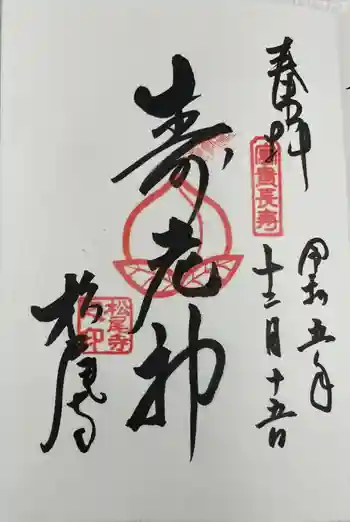 奉拝
富貴長寿
令和五年
十二月十五日
寿老神
松尾寺
松尾寺印